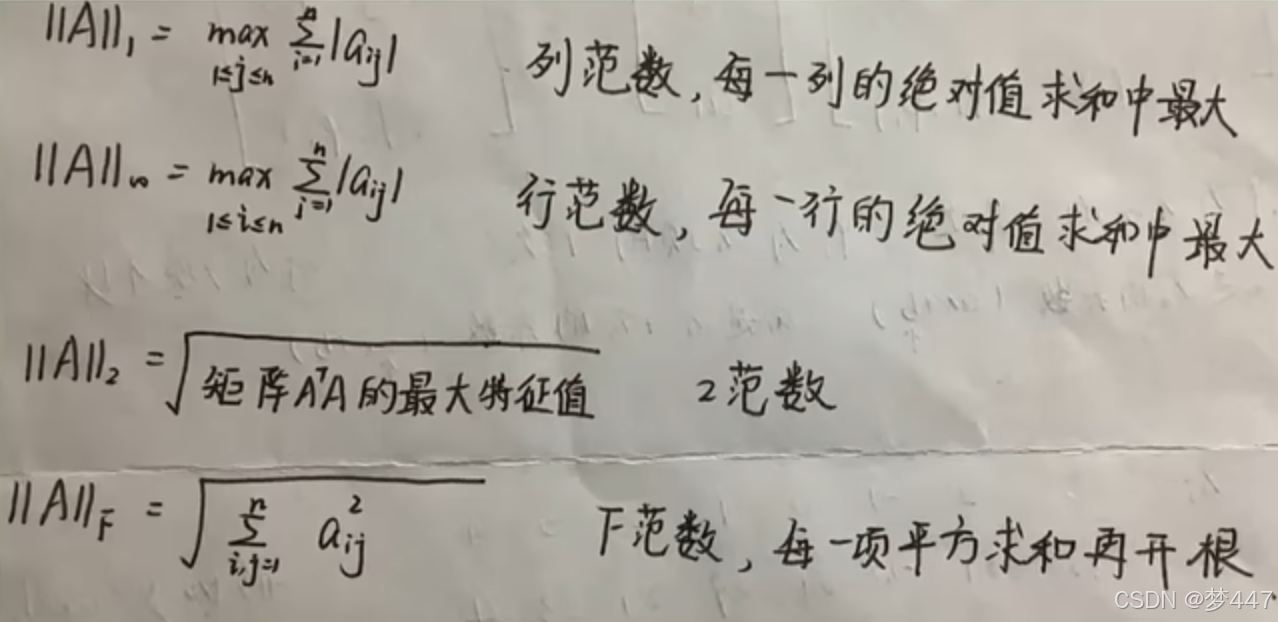 ||A||₁ = max_{1≤j≤n} ∑_{i=1}^{n} |a_{ij}| 列范数,每一列的绝对值求和中最大
||A||_∞ = max_{1≤i≤n} ∑_{j=1}^{n} |a_{ij}| 行范数,每一行的绝对值求和中最大
||A||₂ = √(矩阵AᵀA的最大特征值) 2范数
||A||_F = √(∑_{i,j=1}^{n} a_{ij}²) F范数,每一项平方求和再开根
CSDN @梦447